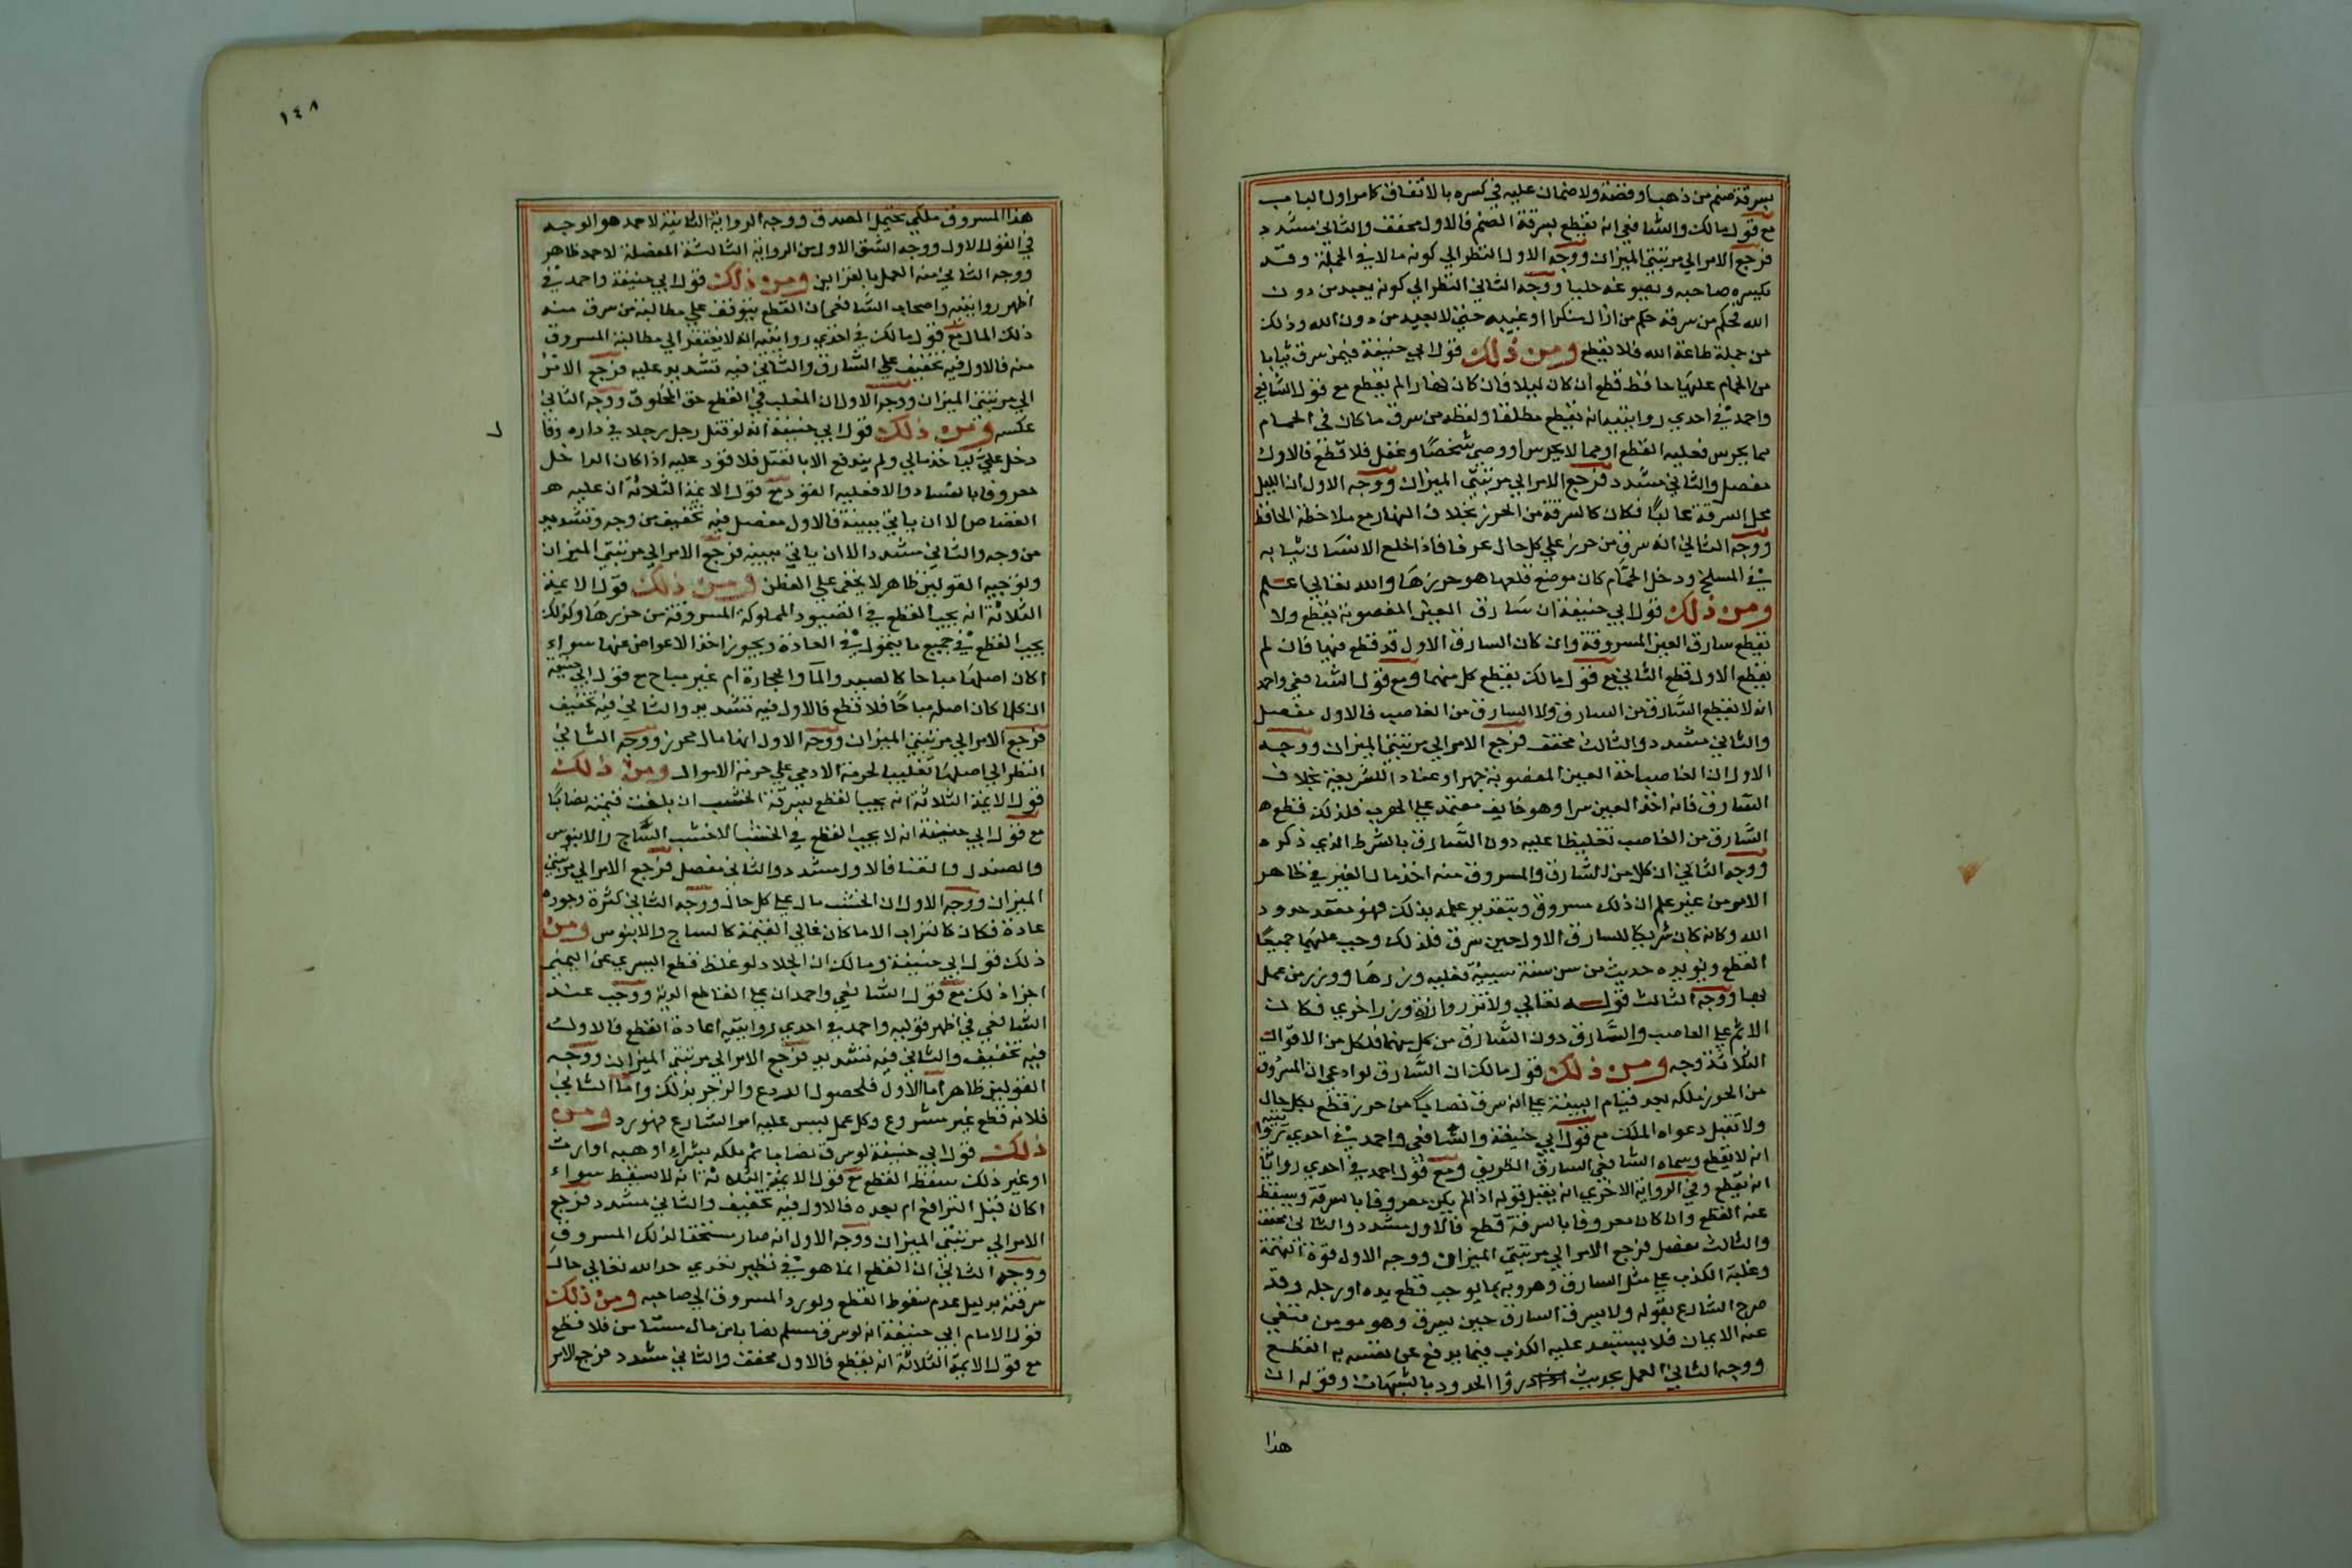 بسرقة صنم من ذهب او فضة ولا ضمان عليه في كسره بالاتفاق كما مر اول الباب
مع قول مالك والشافعي انه يقطع بسرقة الصنم فالاول مخفف والثاني مشدد
فرجع الامر الي مرتبتي الميزان ووجه الاول النظر الي كونه مالا في الجملة وقد
يكسره صاحبه ويصوغه حليا ووجه الثاني النظر الي كونه يعبد من دون
الله فحكم من سرقه حكم من ازال منكرا او غيبه حتي لا يعبد من دون الله وذلك
من جملة طاعة الله فلا يقطع ومن ذلك قول ابي حنيفة فيمن سرق ثيابا
من الحمام عليها حافظ قطع ان كان ليلا فان كان نهارا لم يقطع مع قول الشافعي
واحمد في احدي روايتيه انه يقطع مطلقا ولفظه من سرق ما كان في الحمام
مما يحرس فعليه القطع او مما لا يحرس او وصي شخصا وغفل فلا قطع فالاول
مفصل والثاني مشدد فرجع الامر الي مرتبتي الميزان ووجه الاول ان الليل
محل السرقة غالبا فكان كالسرقة من الحرز بخلاف النهار مع ملاحظة الحافظ
ووجه الثاني انه سرق من حرز علي كل حال عرفا فاذا خلع الانسان ثيابه
في المسلخ ودخل الحمام كان موضع قلعها هو حرزها والله تعالي اعلم
ومن ذلك قول ابي حنيفة ان سارق العين المغصوبة يقطع ولا
يقطع سارق العين المسروقة وان كان السارق الاول قد قطع فيها فان لم
يقطع الاول قطع الثاني مع قول مالك يقطع كل منهما ومع قول الشافعي واحمد
انه لا يقطع السارق من السارق ولا السارق من الغاصب فالاول مفصل
والثاني مشدد والثالث مخفف فرجع الامر الي مرتبتي الميزان ووجه
الاول ان الغاصب اخذ العين المغصوبة جهرا وعنادا للشريعة بخلاف
السارق فانه اخذ العين سرا وهو خايف معتمد علي الهرب فلذلك قطع
السارق من الغاصب تغليظا عليه دون السارق بالشرط الذي ذكره
ووجه الثاني ان كلا من السارق والمسروق منه اخذ مال الغير في ظاهر
الامر من غير علم ان ذلك مسروق وبتقدير علمه بذلك فهو متعد حدود
الله وكانه كان شريكا للسارق الاول حين سرق فلذلك وجب عليهما جميعا
القطع ويويده حديث من سن سنة سيية فعليه وزرها ووزر من عمل
بها ووجه الثالث قوله تعالي ولا تزر وازرة وزر اخري فكان
الاثم علي الغاصب والسارق دون السارق من كل منهما فلكل من الاقوال
الثلاثة وجه ومن ذلك قول مالك ان السارق لو ادعي ان المسروق
من الحرز ملكه بعد قيام البينة علي انه سرق نصابا من حرز قطع بكل حال
ولا تقبل دعواه الملك مع قول ابي حنيفة والشافعي واحمد في احدي
انه لا يقطع وسماه الشافعي السارق الظريف ومع قول احمد في احدي رواياته
انه يقطع وفي الرواية الاخري انه يقبل قوله اذا لم يكن معروفا بالسرقة ويسقط
عنه القطع وان كان معروفا بالسرقة قطع فالاول مشدد والثاني مخفف
والثالث مفصل فرجع الامر الي مرتبتي الميزان ووجه الاول قوة التهمة
وغلبة الكذب علي مثل السارق وهروبه مما يوجب قطع يده او رجله وقد
صرح الشارع بقوله ولا يسرق السارق حين يسرق وهو مومن فنفي
عنه الايمان فلا يستبعد عليه الكذب فيما يدفع عن نفسه به القطع
ووجه الثاني العمل بحديث ادروا الحدود بالشبهات وقوله ان
هذا
١٤٨
هذا المسروق ملكي يحتمل الصدق ووجه الرواية الثانية لاحمد هو الوجه
في القول الاول ووجه الشق الاول من الرواية الثالثة المفصلة لاحمد ظاهر
ووجه الثاني منه العمل بالقراين ومن ذلك قول ابي حنيفة واحمد في
اظهر روايتيه واصحاب الشافعي ان القطع يتوقف علي مطالبة من سرق منه
ذلك المال مع قول مالك في احدي روايتيه انه لا يفتقر الي مطالبة المسروق
منه فالاول فيه تخفيف علي السارق والثاني فيه تشديد عليه فرجع الامر
الي مرتبتي الميزان ووجه الاول ان المغلب في القطع حق المخلوق ووجه الثاني
عكسه ومن ذلك قول ابي حنيفة انه لو قتل رجل رجلا في داره وقال
دخل علي لياخذ مالي ولم يندفع الا بالقتل فلا قود عليه اذا كان الداخل
معروفا بالفساد والا فعليه القود مع قول الايمة الثلاثة ان عليه
القصاص الا ان ياتي ببينة فالاول مفصل فيه تخفيف من وجه وتشديد
من وجه والثاني مشدد الا ان ياتي ببينة فرجع الامر الي مرتبتي الميزان
وتوجيه القولين ظاهر لا يخفي علي الفطن ومن ذلك قول الايمة
الثلاثة انه يجب القطع في الصيود المملوكة المسروقة من حرزها وكذلك
يجب القطع في جميع ما يتمول في العادة ويجوز اخذ الاعواض عنها سواء
اكان اصلها مباحا كالصيد والما والحجارة ام غير مباح مع قول ابي حنيفة
ان كلما كان اصله مباحا فلا قطع فالاول فيه تشديد والثاني فيه تخفيف
فرجع الامر الي مرتبتي الميزان ووجه الاول انها مال محرز ووجه الثاني
النظر الي اصلها تغليبا لحرمة الادمي علي حرمة الاموال ومن ذلك
قول الايمة الثلاثة انه يجب القطع بسرقة الخشب ان بلغت قيمته نصابا
مع قول ابي حنيفة انه لا يجب القطع في الخشب الا خشب الساج والابنوس
والصندل والقنا فالاول مشدد والثاني مفصل فرجع الامر الي مرتبتي
الميزان ووجه الاول ان الخشب مال علي كل حال ووجه الثاني كثرة وجوده
عادة فكان كالتراب الا ما كان غالي القيمة كالساج والابنوس ومن
ذلك قول ابي حنيفة ومالك ان الجلاد لو غلط فقطع اليسري عن اليمين
اجزا ذلك مع قول الشافعي واحمد ان علي القاطع الدية ووجب عند
الشافعي في اظهر قوليه واحمد في احدي روايتيه اعادة القطع فالاول
فيه تخفيف والثاني فيه تشديد فرجع الامر الي مرتبتي الميزان ووجه
القولين ظاهر اما الاول فلحصول الردع والزجر بذلك واما الثاني
فلانه قطع غير مشروع وكل عمل ليس عليه امر الشارع فهو رد ومن
ذلك قول ابي حنيفة لو سرق نصابا ثم ملكه بشراء او هبة او ارث
او غير ذلك سقط القطع مع قول الايمة الثلاثة انه لا يسقط سواء
اكان قبل الترافع ام بعده فالاول فيه تخفيف والثاني مشدد فرجع
الامر الي مرتبتي الميزان ووجه الاول انه صار مستحقا لذلك المسروق
ووجه الثاني ان القطع انما هو في نظير تعدي حد الله تعالي حال
سرقته بدليل عدم سقوط القطع ولو رد المسروق الي صاحبه ومن ذلك
قول الامام ابي حنيفة انه لو سرق مسلم نصابا من مال مستامن فلا قطع
مع قول الايمة الثلاثة انه يقطع فالاول مخفف والثاني مشدد فرجع الامر